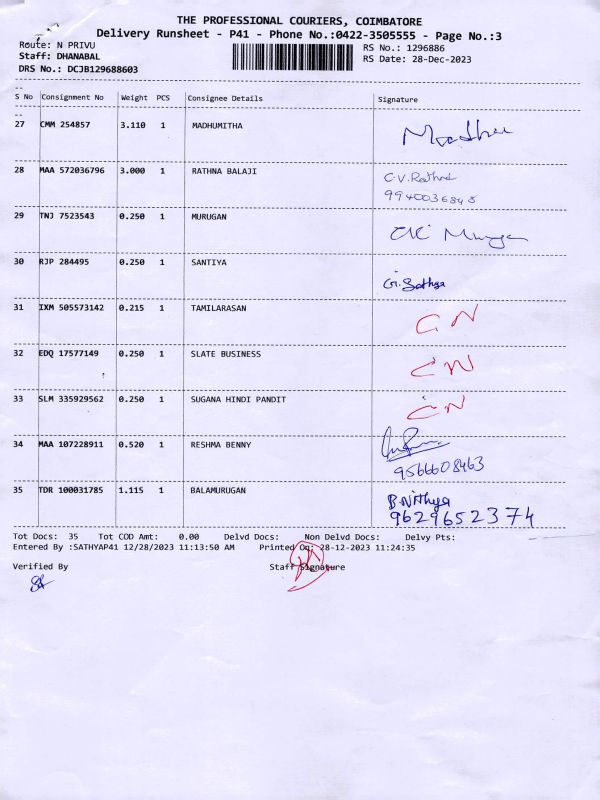 THE PROFESSIONAL COURIERS, COIMBATORE
Delivery Runsheet - P41 - Phone No.:0422-3505555 - Page No.:3
Route: N PRIVU RS No.: 1296886
Staff: DHANABAL RS Date: 28-Dec-2023
DRS No.: DCJB129688603
S No Consignment No Weight PCS Consignee Details Signature
27 CMM 254857 3.110 1 MADHUMITHA Madhu
28 MAA 572036796 3.000 1 RATHNA BALAJI C.V. Rathna
9940036848
29 TNJ 7523543 0.250 1 MURUGAN Murugan
30 RJP 284495 0.250 1 SANTIYA G. Sathya
31 IXM 505573142 0.215 1 TAMILARASAN CN
32 EDQ 17577149 0.250 1 SLATE BUSINESS CN
33 SLM 335929562 0.250 1 SUGANA HINDI PANDIT CN
34 MAA 107228911 0.520 1 RESHMA BENNY
9566608463
35 TDR 100031785 1.115 1 BALAMURUGAN B.Nithya
9629652374
Tot Docs: 35 Tot COD Amt: 0.00 Delvd Docs: Non Delvd Docs: Delvy Pts:
Entered By :SATHYAP41 12/28/2023 11:13:50 AM Printed On: 28-12-2023 11:24:35
Verified By Staff Signature